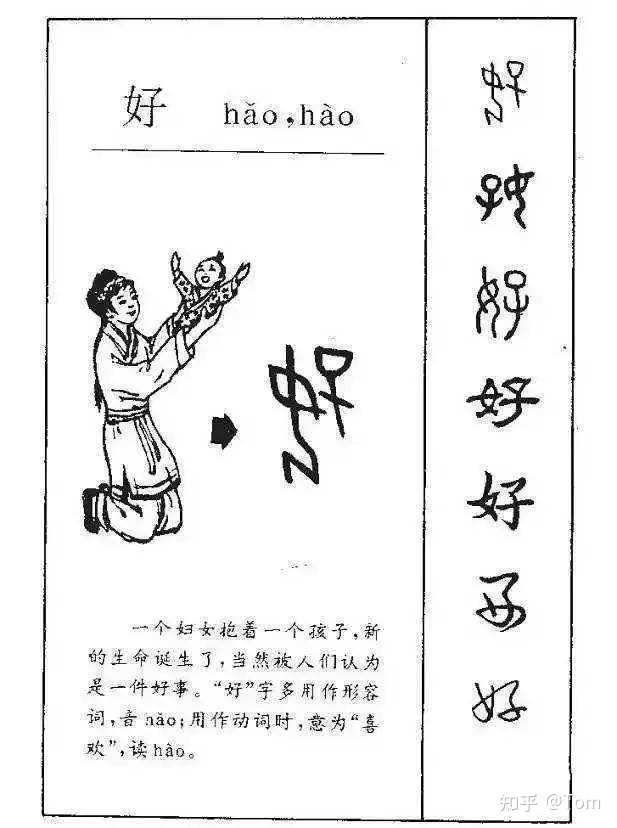 好 hǎo,hào
一个妇女抱着一个孩子,新
的生命诞生了,当然被人们认为
是一件好事。“好”字多用作形容
词,音hǎo;用作动词时,意为“喜
欢”,读hào。
好
好
好
好
好
好
好
知乎 @Tom